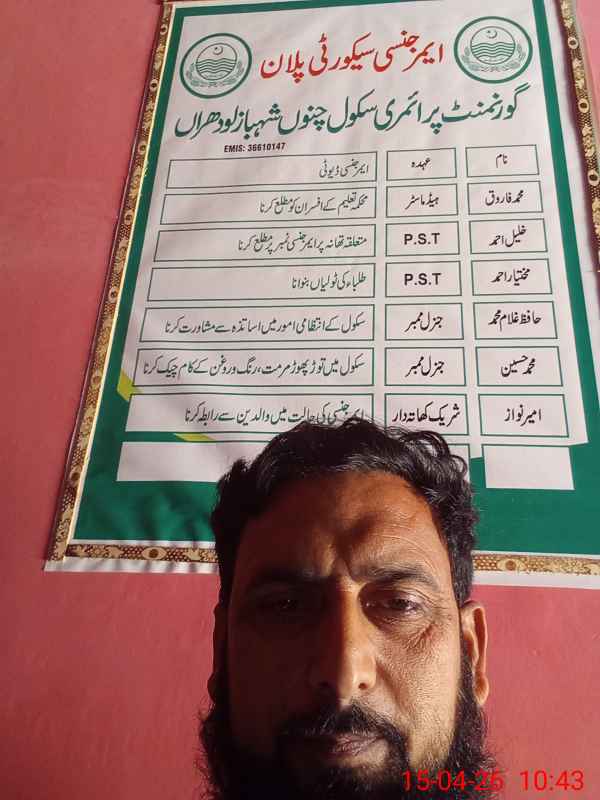 ایمرجنسی سیکورٹی پلان
گورنمنٹ پرائمری سکول چنوں شہباز لودھراں
EMIS: 36610147
نام عہدہ ایمرجنسی ڈیوٹی
محمد فاروق ہیڈ ماسٹر محکمہ تعلیم کے افسران کو مطلع کرنا
خلیل احمد P.S.T متعلقہ تھانہ پر ایمرجنسی نمبر پر مطلع کرنا
مختیار احمد P.S.T طلباء کی ٹولیاں بنوانا
حافظ غلام محمد جنرل ممبر سکول کے انتظامی امور میں اساتذہ سے مشاورت کرنا
محمد حسین جنرل ممبر سکول میں توڑ پھوڑ مرمت، رنگ و روغن کے کام چیک کرنا
امیر نواز شریک کھاتہ دار ایمرجنسی کی حالت میں والدین سے رابطہ کرنا
15-04-26 10:43